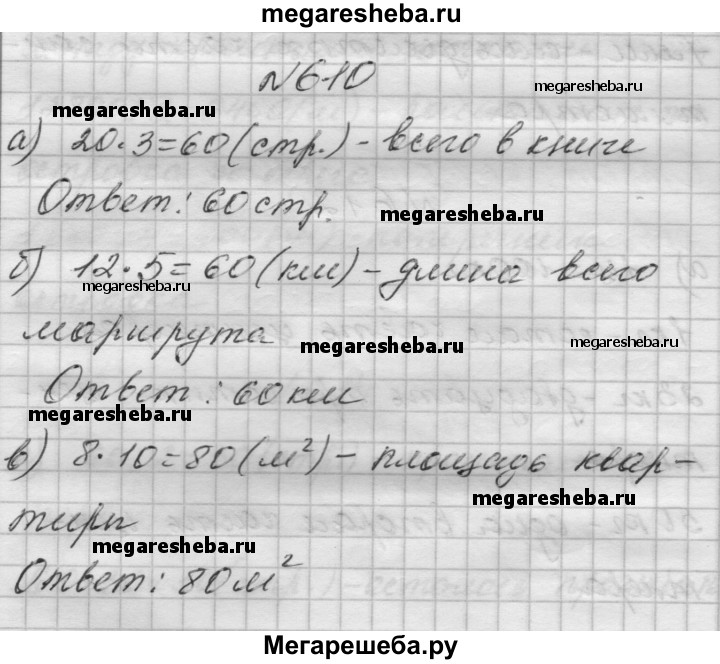 megaresheba.ru
№610
megaresheba.ru
megaresheba.ru
а) 20·3=60(стр.) - всего в книге
Ответ: 60 стр.
megaresheba.ru
б) 12·5=60(км) - длина всего
megaresheba.ru
маршрута
megaresheba.ru
megaresheba.ru
Ответ: 60 км
megaresheba.ru
в) 8·10=80(м²) - площадь квар-
megaresheba.ru
тиры
megaresheba.ru
Ответ: 80 м²
Мегарешеба.ру